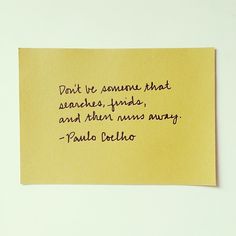 Don't be someone that
searches, finds,
and then runs away.
-Paulo Coelho